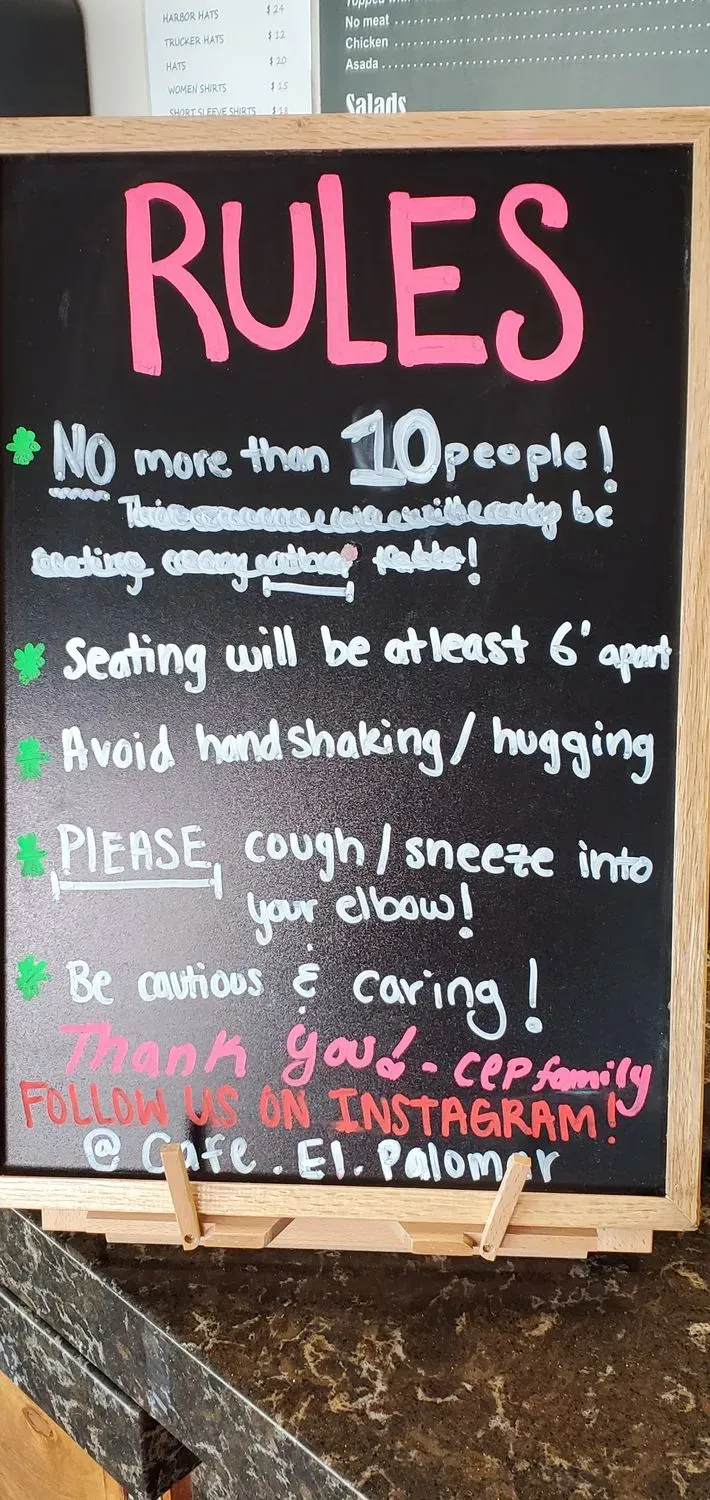 HARBOR HATS $24
TRUCKER HATS $12
HATS $20
WOMEN SHIRTS $15
SHORT SLEEVE SHIRTS $18
No meat
Chicken
Asada
Salads
RULES
NO more than 10 people!
be
!
Seating will be atleast 6' apart
Avoid handshaking / hugging
PlEASE cough / sneeze into
your elbow!
Be cautious & caring!
Thank you! - CEP family
FOLLOW US ON INSTAGRAM!
@ Cafe.El.Palomar